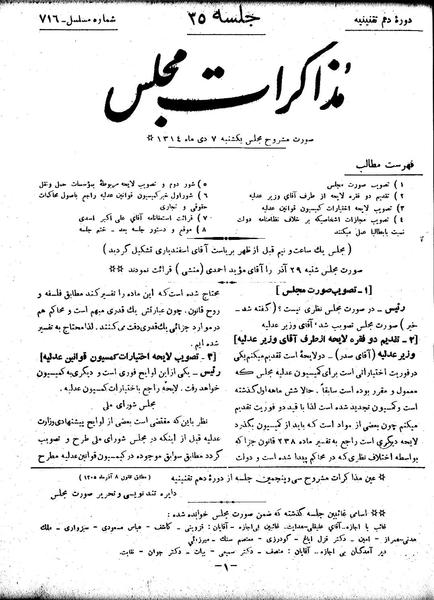 دورهٔ دهم تقنینیه
جلسه ۳۵
شماره مسلسل - ۷۱۶
مذاکرات مجلس
صورت مشروح مجلس یکشنبه ۷ دی ماه ۱۳۱۴ ※
فهرست مطالب
۱) تصویب صورت مجلس
۲) تقدیم دو فقره لایحه از طرف آقای وزیر عدلیه
۳) تصویب لایحه اختیارات کمیسیون قوانین عدلیه
۴) تصویب مجازات اشخاصیکه بر خلاف نظامنامه دولت
نسبت باطفال عمل میکنند
۵) شور دوم و تصویب لایحه مربوطهٔ بمؤسسات حمل ونقل
۶) شوراول خبرکمیسیون قوانین عدلیه راجع باصول محاکمات
حقوقی و تجارتی
۷) قرائت استعفانامه آقای علی اکبر اسدی
۸) موقع و دستور جلسه بعد - ختم جلسه
(مجلس یک ساعت و نیم قبل از ظهر بریاست آقای اسفندیاری تشکیل گردید)
صورت مجلس شنبه ۲۹ آذر را آقای مؤید احمدی (منشی) قرائت نمودند ※※
[۱ـ تصویب صورت مجلس]
رئیس ـ در صورت مجلس نظری نیست؟ (گفته شد ـ
خیر) صورت مجلس تصویب شد. آقای وزیر عدلیه
[۲ـ تقدیم دو فقره لایحه ازطرف آقای وزیر عدلیه]
وزیر عدلیه (آقای صدر) ـ دولایحهٔ است تقدیم میکنم یکی
درقوت اختیاراتی است برای کمیسیون عدلیه همانطوریکه
معمول و مقرر بوده است سابقاً. حالا شش ماهه اول گذشته
است وکمیسیون تجدید شده است لذا با قید دو فوریت تقدیم
میکنم چون بعضی از مواد است که باید از کمیسیون بگذرد
لایحه دیگری است راجع به تفسیر ماده ۲۳۸ قانون جزا که
بواسطه اختلاف نظری که در محاکم پیدا شده است و دولت
محتاج شده است که این ماده را تفسیر کند مطابق فلسفه و
روح قانون. چون عبارتش یک قدری مبهم است و محاکم هم
درموارد جزائی یک قدری دقت می کنند. لذا محتاج به تفسیر
شده ایم.
[۳ـ تصویب لایحه اختیارات کمسیون قوانین عدلیه]
رئیس ـ یکی از این لوایح فوری است و دیگری به کمیسیون
خواهد رفت. لایحه راجع باختیارات کمیسیون عدلیه.
مجلس شورای ملی
نظر باین که مقتضی است بعضی از لوایح پیشنهادی وزارت
عدلیه قبل از اینکه در مجلس شورای ملی طرح و تصویب
گردد مطابق سوابق موجوده در کمیسیون قوانین عدلیه مطرح
※ عین مذاکرات مشروح سی وپنجمین جلسه از دورهٔ دهم تقنینیه
(مطابق قانون ۸ آذرماه ۱۳۰۵)
دایره تند نویسی و تحریر صورت مجلس
※※ اسامی غائبین جلسه گذشته که ضمن صورت مجلس خوانده شده:
غائب با اجازه ـ آقای خلیقی ـ هدایت. غائبین بی اجازه ـ آقایان: قزوینی ـ کاشف ـ عباس مسعودی ـ سبزواری ـ ملک
مدنی ـ صراز ـ امین ـ دکتر قزل ایاغ ـ گودرزی ـ معتصم سنک ـ میرزائی
دیر آمدگان بی اجازه ـ آقایان: منصف ـ دکتر سمیعی ـ بیات ـ دکتر جوان ـ نقابت.
ـ۱ـ